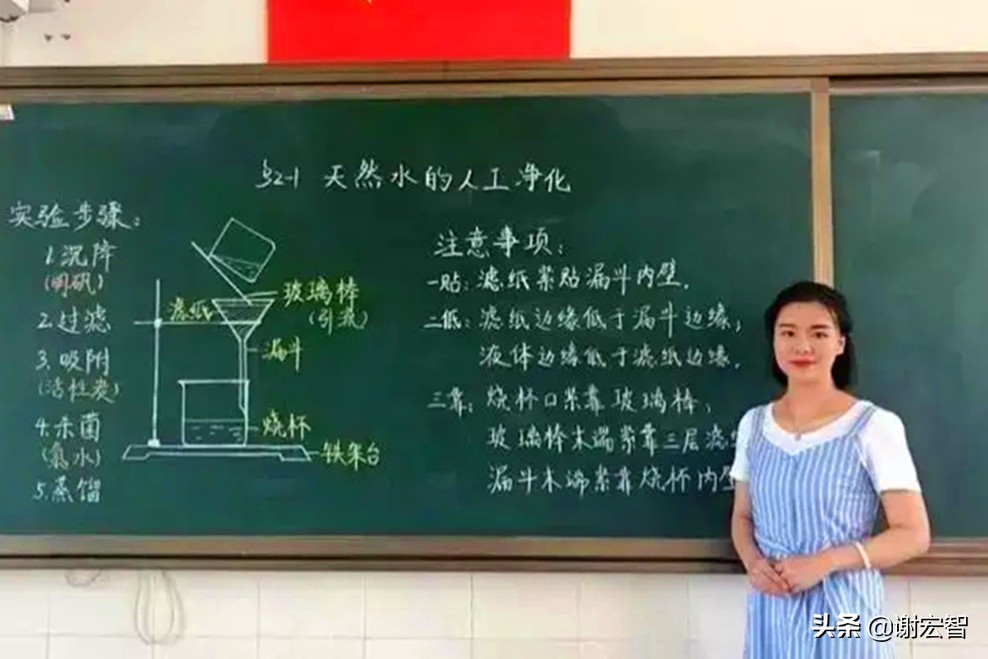 §2-1 天然水的人工净化
实验步骤:
1.沉降
(明矾)
2.过滤
3.吸附
(活性炭)
4.杀菌
(氯水)
5.蒸馏
滤纸
玻璃棒
(引流)
漏斗
烧杯
铁架台
注意事项:
一贴:滤纸紧贴漏斗内壁.
二低:滤纸边缘低于漏斗边缘;
液体边缘低于滤纸边缘.
三靠:烧杯口紧靠玻璃棒;
玻璃棒末端紧靠三层滤
漏斗末端紧靠烧杯内壁
头条 @谢宏智